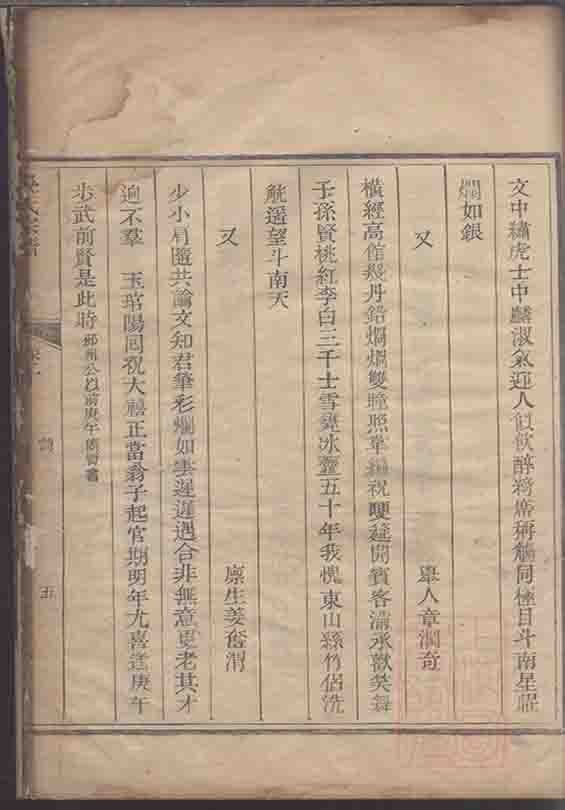 文中繡虎士中麟淑氣迎人似飲醇將席稱觴同極目斗南星耀
爛如銀
又
舉人章瀾奇
橫經高館幾丹鉛爛爛雙瞳照單編祝嘏筵開賓客滿承歡笑舞
子孫賢桃紅李白三千士雪甕冰虀五十年我愧東山絲竹侶洗
觥遥望斗南天
又
廪生姜奮渭
少小肩隨共論文知君筆彩爛如雲遲遲遇合非無意更老其才
迥不羣 玉琯陽囘祝大禧正當翁子起官期明年尤喜逢庚午
步武前賢是此時
公以前庚午
五